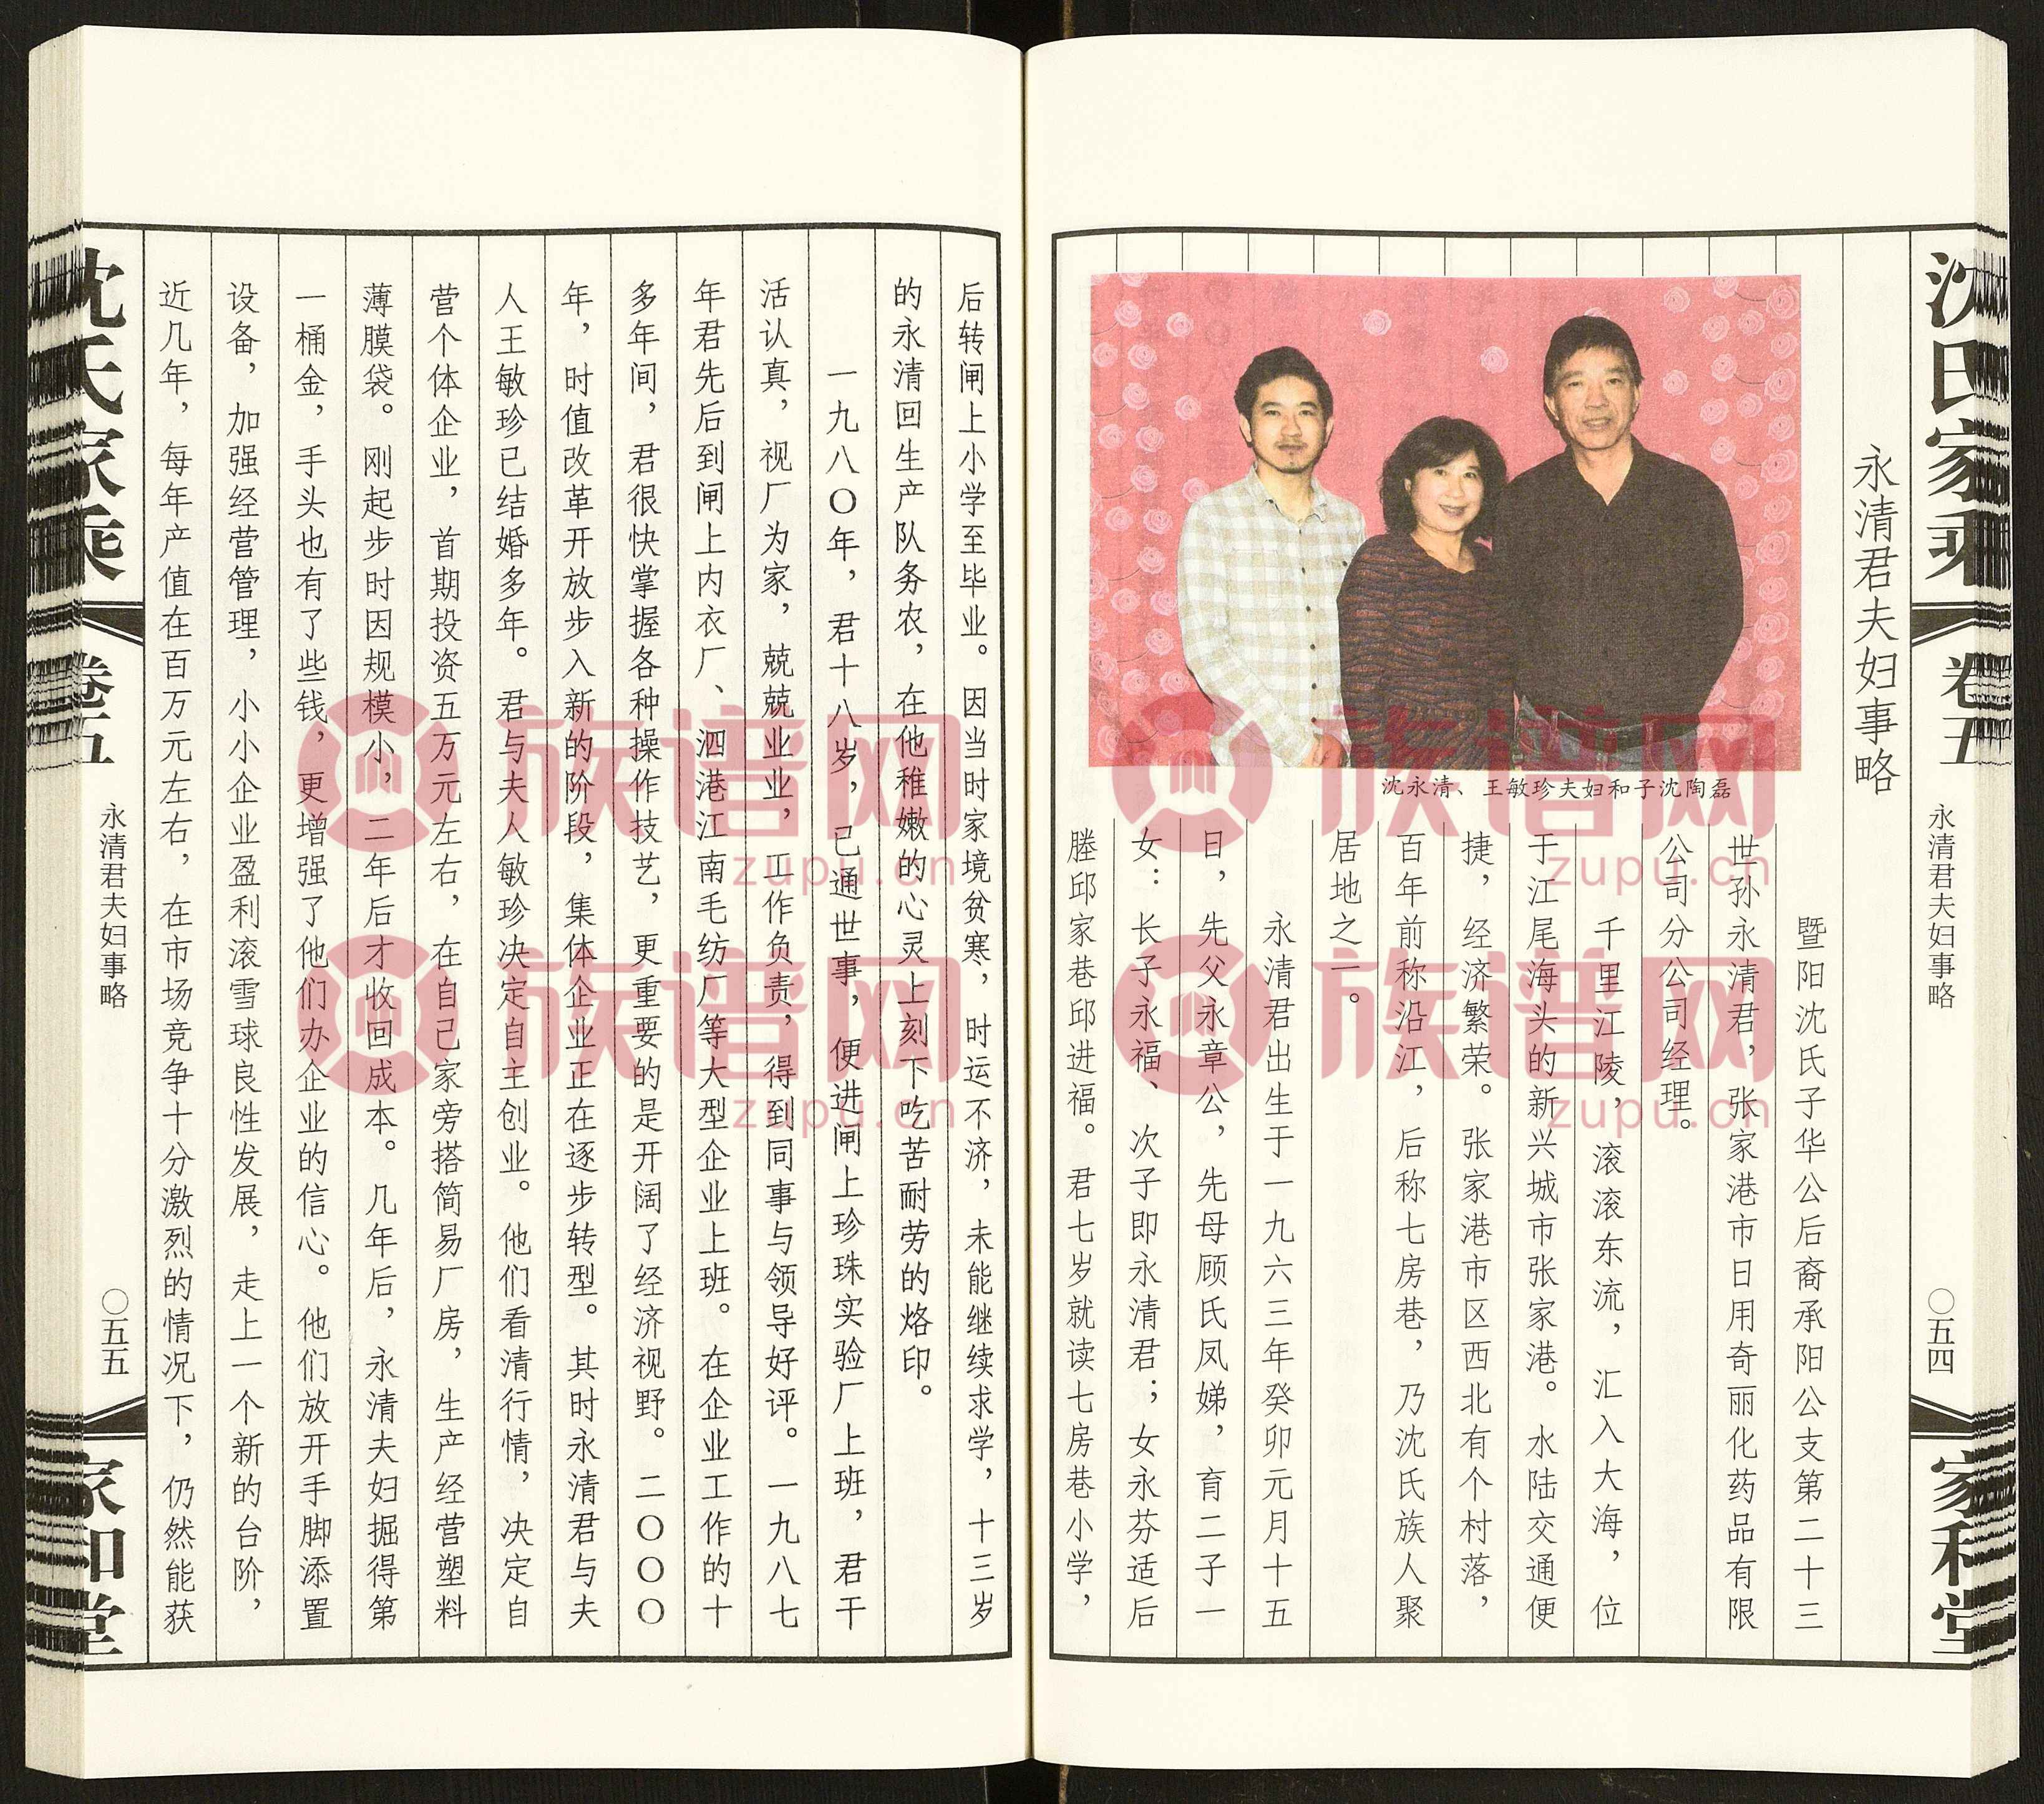 沈氏家乘
卷五
永清君夫妇事略
〇五四
家和堂
永清君夫妇事略
沈永清、王敏珍夫妇和子沈陶磊
暨阳沈氏子华公后裔承阳公支第二十三
世孙永清君，张家港市日用奇丽化药品有限
公司分公司经理。
千里江陵，滚滚东流，汇入大海，位
于江尾海头的新兴城市张家港。水陆交通便
捷，经济繁荣。张家港市区西北有个村落，
百年前称沿江，后称七房巷，乃沈氏族人聚
居地之一。
永清君出生于一九六三年癸卯元月十五
日，先父永章公，先母顾氏凤娣，育二子一
女：长子永福、次子即永清君；女永芬适后
塍邱家巷邱进福。君七岁就读七房巷小学，
后转闸上小学至毕业。因当时家境贫寒，时运不济，未能继续求学，十三岁
的永清回生产队务农，在他稚嫩的心灵上刻下吃苦耐劳的烙印。
一九八〇年，君十八岁，已通世事，便进闸上珍珠实验厂上班，君干
活认真，视厂为家，兢兢业业，工作负责，得到同事与领导好评。一九八七
年君先后到闸上内衣厂、泗港江南毛纺厂等大型企业上班。在企业工作的十
多年间，君很快掌握各种操作技艺，更重要的是开阔了经济视野。二〇〇〇
年，时值改革开放步入新的阶段，集体企业正在逐步转型。其时永清君与夫
人王敏珍已结婚多年。君与夫人敏珍决定自主创业。他们看清行情，决定自
营个体企业，首期投资五万元左右，在自己家旁搭简易厂房，生产经营塑料
薄膜袋。刚起步时因规模小，二年后才收回成本。几年后，永清夫妇掘得第
一桶金，手头也有了些钱，更增强了他们办企业的信心。他们放开手脚添置
设备，加强经营管理，小小企业盈利滚雪球良性发展，走上一个新的台阶，
近几年，每年产值在百万元左右，在市场竞争十分激烈的情况下，仍然能获
沈氏家乘
卷五
永清君夫妇事略
〇五五
家和堂
族谱网
zupu.cn
族谱网
zupu.cn
族谱网
zupu.cn
族谱网
zupu.cn